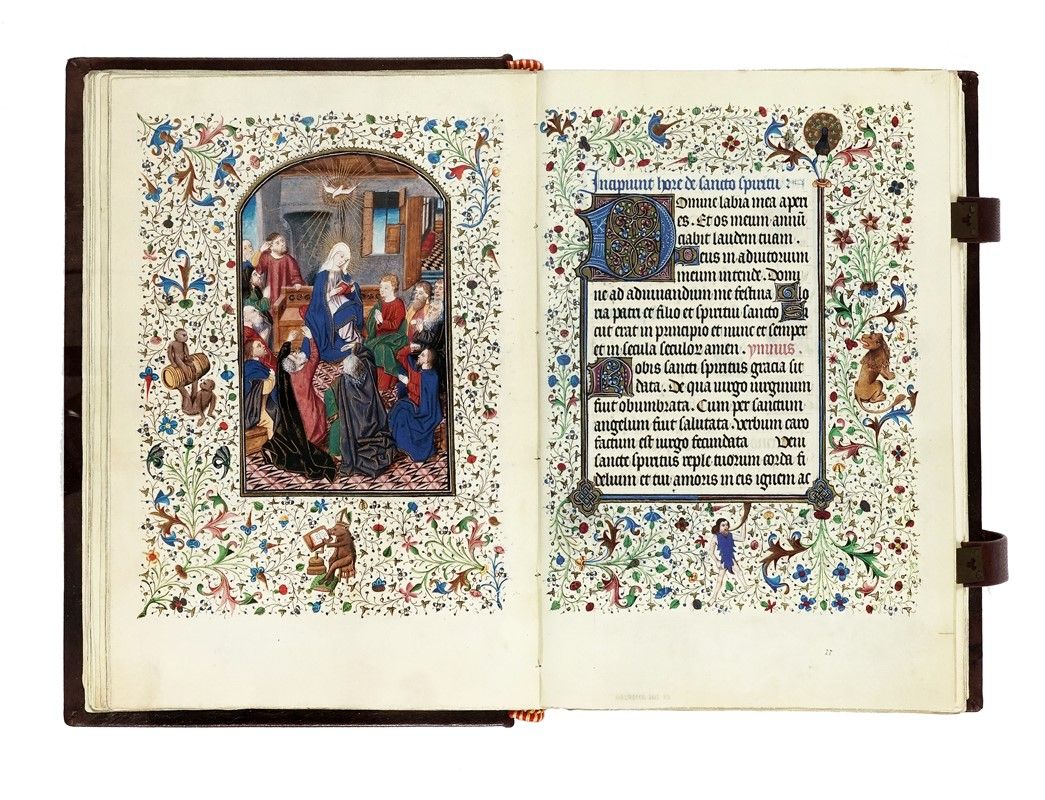 Incipiunt hore de sancto spiritu
Domine labia mea aperi
es. Et os meum annũ
ciabit laudem tuam.
Deus in adiutorium
meum intende. Domi
ne ad adiuuandum me festina Glo
ria patri et filio et spiritui sancto S
icut erat in principio et nunc et semper
et in secula seculor amen. ymnus.
Nobis sancti spiritus gracia sit
data. De qua uirgo uirginum
fuit obumbrata. Cum per sanctum
angelum fuit salutata. verbum caro
factum est uirgo fecundata Veni
sancte spiritus reple tuorum corda fi
delium et tui amoris in eis ignem ac
22